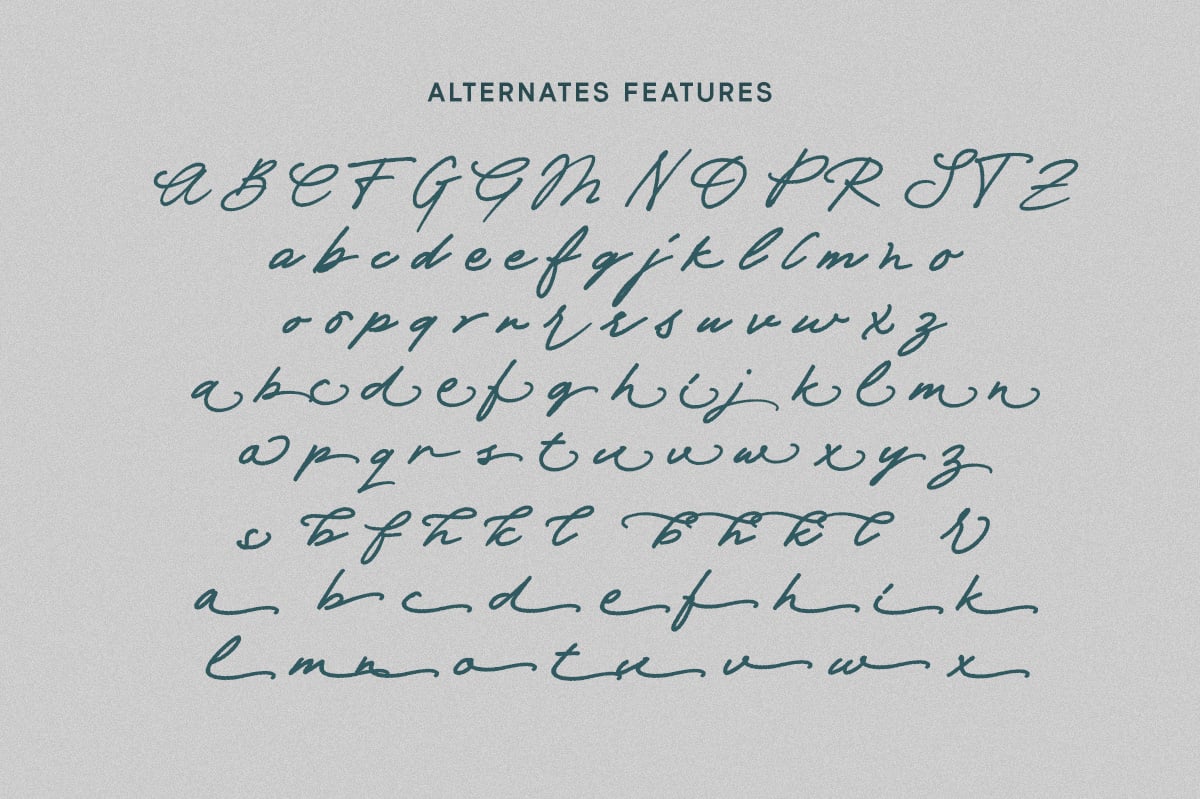 ALTERNATES FEATURES
A B C F G G M N O P R S T Z
a b c d e e f g j k l l m n o
o o p q r n r r s u v w x z
a b c d e f g h i j k l m n
a p q r s t u v w x y z
s b f h k t b h k t r
a b c d e f h i k
l m n o t u v w x